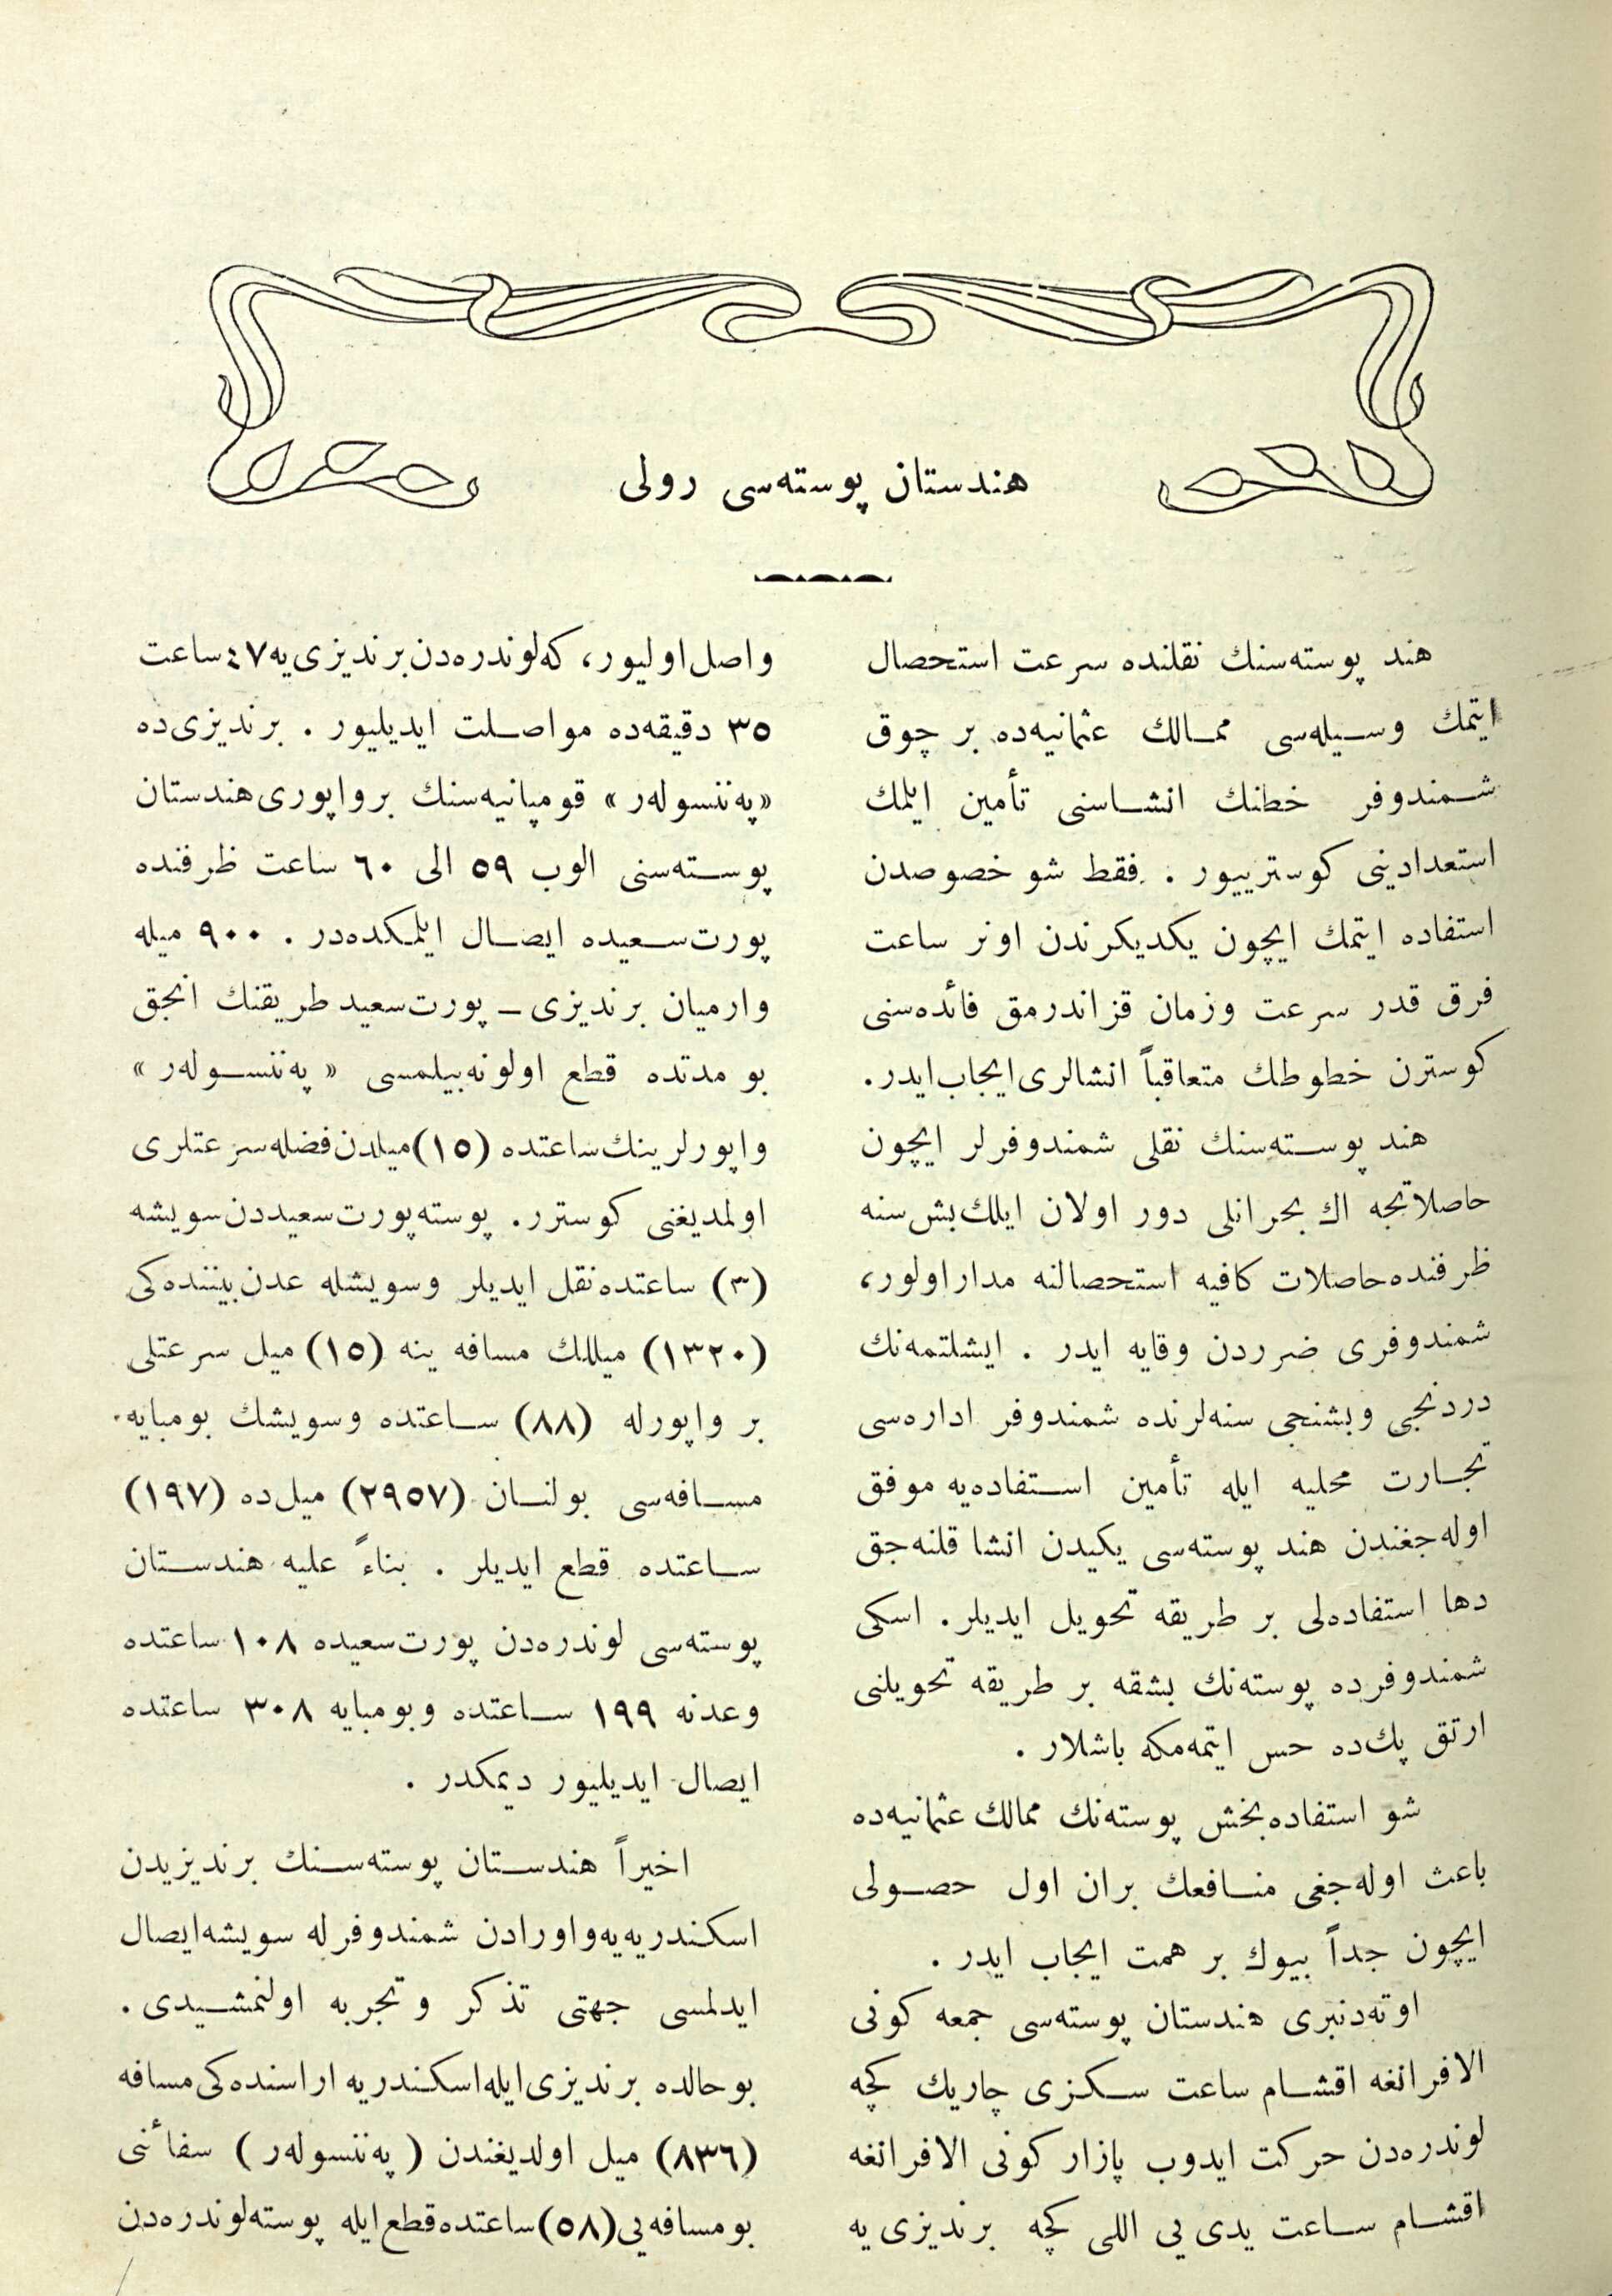 هندستان پوسته‌سی رولی
هند پوسته‌سنك نقلنده سرعت استحصال
ایتمك وسیله‌سی ممالك عثمانیه‌ده بر چوق
شمندوفر خطنك انشاسنی تأمین ایلمك
استعدادینی كوسترییور . فقط شو خصوصدن
استفاده ایتمك ایچون یكدیكرندن اونر ساعت
فرق قدر سرعت وزمان قزاندرمق فائده‌سنی
كوسترن خطوطك متعاقباً انشالری ایجاب ایدر.
هند پوسته‌سنك نقلی شمندوفرلر ایچون
حاصلاتجه اك بحرانلی دور اولان ایلك بش سنه
ظرفنده حاصلات كافیه استحصالنه مدار اولور،
شمندوفری ضرردن وقایه ایدر . ایشلتمه‌نك
دردنجی وبشنجی سنه‌لرنده شمندوفر اداره‌سی
تجارت محلیه ایله تأمین استفاده‌یه موفق
اوله‌جغندن هند پوسته‌سی یكیدن انشا قلنه‌جق
دها استفاده‌لی بر طریقه تحویل ایدیلر. اسكی
شمندوفرده پوسته‌نك بشقه بر طریقه تحویلنی
ارتق پك‌ده حس ایتمه‌مكه باشلار .
شو استفاده‌بخش پوسته‌نك ممالك عثمانیه‌ده
باعث اوله‌جغی منافعك بران اول حصولی
ایچون جداً بیوك بر همت ایجاب ایدر .
اوته‌دنبری هندستان پوسته‌سی جمعه كونی
الافرانغه اقشام ساعت سكزی چاریك كچه
لوندره‌دن حركت ایدوب پازار كونی الافرانغه
اقشام ساعت یدی یی اللی كچه برندیزی یه
واصل اولیور، كه لوندره‌دن برندیزی‌یه ٤٧ ساعت
٣٥ دقیقه‌ده مواصلت ایدیلیور . برندیزی‌ده
«په‌ننسوله‌ر» قومپانیه‌سنك بر واپوری هندستان
پوسته‌سنی الوب ٥٩ الی ٦٠ ساعت ظرفنده
پورت‌سعیده ایصال ایلمكده‌در . ٩٠٠ میله
وارمیان برندیزی ــ پورت‌سعید طریقنك انجق
بو مدتده قطع اولونه‌بیلمسی « په‌ننسوله‌ر »
واپورلرینك ساعتده (١٥) میلدن فضله سرعتلری
اولمدیغنی كوسترر. پوسته پورت‌سعیددن سویشه
(٣) ساعتده نقل ایدیلر وسویشله عدن بیننده‌كی
(١٣٢٠) میللك مسافه ینه (١٥) میل سرعتلی
بر واپورله (٨٨) ساعتده وسویشك بومبایه
مسافه‌سی بولنان (٢٩٥٧) میل‌ده (١٩٧)
ساعتده قطع ایدیلر . بناءً علیه هندستان
پوسته‌سی لوندره‌دن پورت‌سعیده ١٠٨ ساعتده
وعدنه ١٩٩ ساعتده وبومبایه ٣٠٨ ساعتده
ایصال ایدیلیور دیمكدر .
اخیراً هندستان پوسته‌سنك برندیزیدن
اسكندریه‌یه واورادن شمندوفرله سویشه ایصال
ایدلمسی جهتی تذكر و تجربه اولنمشیدی .
بوحالده برندیزی ایله اسكندریه اراسنده‌كی مسافه
(٨٣٦) میل اولدیغندن ( په‌ننسوله‌ر ) سفائنی
بومسافه‌یی (٥٨) ساعتده قطع ایله پوسته لوندره‌دن